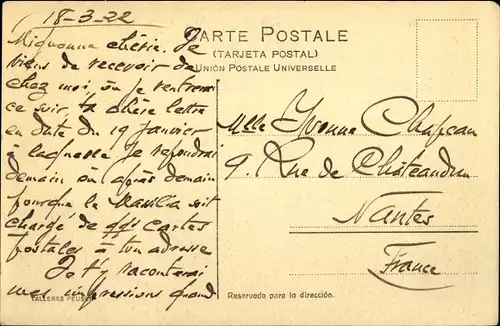 18-3-22
Mignonne chérie. Je
viens de recevoir de
chez moi, où je rentrerai
ce soir, ta chère lettre
en date du 19 Janvier
à laquelle je répondrai
demain où après demain
pourque le Massilia soit
chargé de qqs cartes
postales à ton adresse
Je t'y raconterai
mes impressions quand
TALLERES PEUSER
CARTE POSTALE
(TARJETA POSTAL)
UNIÓN POSTALE UNIVERSELLE
Mlle Yvonne Chapeau
9. Rue de Châteaudun
Nantes
France
Reservado para la dirección.